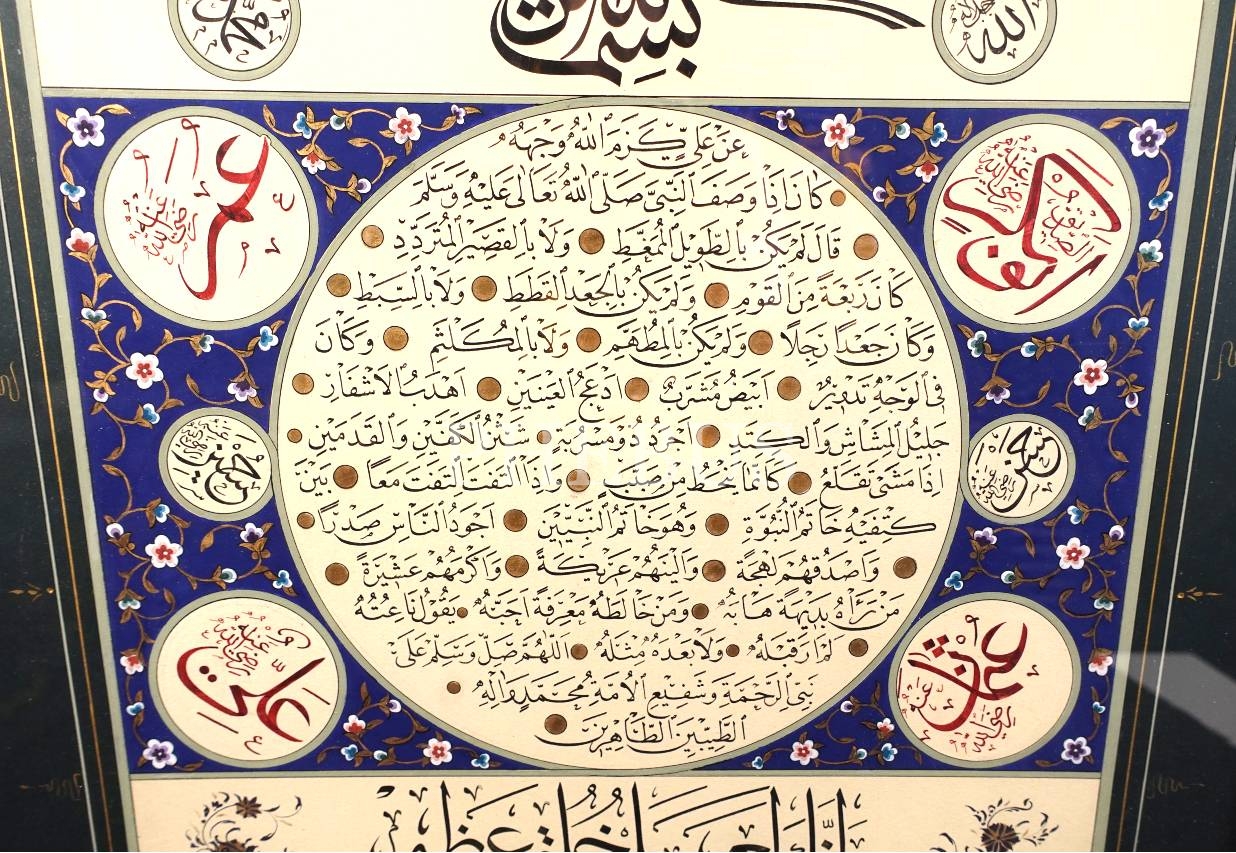 بسم الله
الله جل جلاله
محمد
عَنْ عَلِيٍّ كَرَّمَ اللّٰهُ وَجْهَهُ
كَانَ اِذَا وَصَفَ النَّبِيَّ صَلَّى اللّٰهُ تَعَالٰى عَلَيْهِ وَسَلَّمَ
قَالَ لَمْ يَكُنْ بِالطَّوِيلِ الْمُمَغَّطِ وَلَا بِالْقَصِيرِ الْمُتَرَدِّدِ
كَانَ رَبْعَةً مِنَ الْقَوْمِ وَلَمْ يَكُنْ بِالْجَعْدِ الْقَطَطِ وَلَا بِالسَّبِطِ
وَكَانَ جَعْدًا رَجِلًا وَلَمْ يَكُنْ بِالْمُطَهَّمِ وَلَا بِالْمُكَلْثَمِ وَكَانَ
فِي الْوَجْهِ تَدْوِيرٌ اَبْيَضُ مُشْرَبٌ اَدْعَجُ الْعَيْنَيْنِ اَهْدَبُ الْاَشْفَارِ
جَلِيلُ الْمُشَاشِ وَالْكَتَدِ اَجْرَدُ ذُو مَسْرُبَةٍ شَثْنُ الْكَفَّيْنِ وَالْقَدَمَيْنِ
اِذَا مَشٰى تَقَلَّعَ كَاَنَّمَا يَنْحَطُّ مِنْ صَبَبٍ وَاِذَا الْتَفَتَ الْتَفَتَ مَعًا بَيْنَ
كَتِفَيْهِ خَاتَمُ النُّبُوَّةِ وَهُوَ خَاتَمُ النَّبِيِّينَ اَجْوَدُ النَّاسِ صَدْرًا
وَاَصْدَقُهُمْ لَهْجَةً وَاَلْيَنُهُمْ عَرِيكَةً وَاَكْرَمُهُمْ عَشِيرَةً
مَنْ رَاٰهُ بَدِيهَةً هَابَهُ وَمَنْ خَالَطَهُ مَعْرِفَةً اَحَبَّهُ يَقُولُ نَاعِتُهُ
لَمْ اَرَ قَبْلَهُ وَلَا بَعْدَهُ مِثْلَهُ اَللّٰهُمَّ صَلِّ وَسَلِّمْ عَلٰى
نَبِيِّ الرَّحْمَةِ وَشَفِيعِ الْاُمَّةِ مُحَمَّدٍ وَاٰلِهِ
الطَّيِّبِينَ الطَّاهِرِينَ
ابو بكر الصديق رضي الله عنه
عمر رضي الله عنه
حسن
حسين
عثمان رضي الله عنه
علي رضي الله عنه